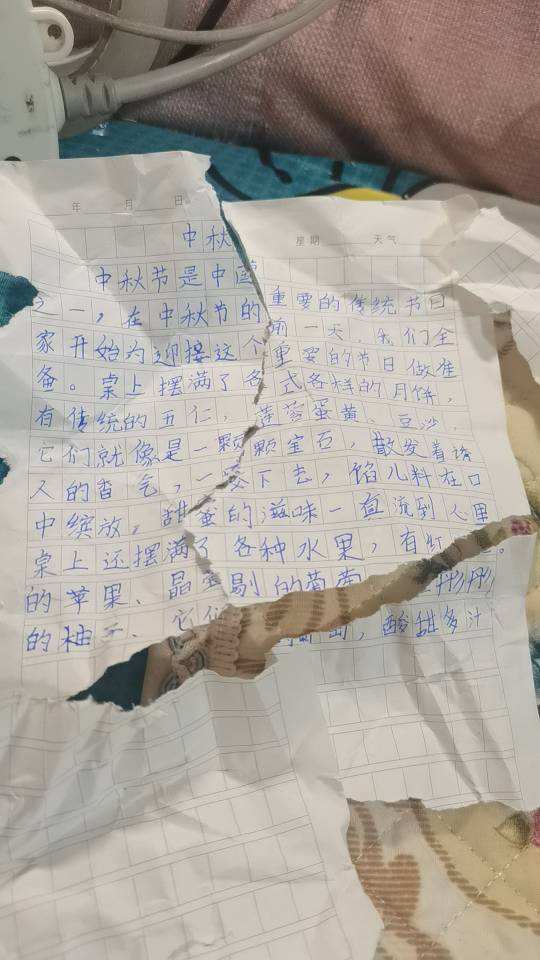 年 月 日 星期 天气
中秋
中秋节是中国重要的传统节日
之一，在中秋节的前一天，我们全
家开始为迎接这个重要的节日做准
备。桌上摆满了各式各样的月饼，
有传统的五仁，莲蓉蛋黄、豆沙，
它们就像是一颗颗宝石，散发着诱
人的香气，一下去，馅儿料在口
中缤放，甜蜜的滋味一直流到心里
桌上还摆满了各种水果，有红。
的苹果、晶剔的葡萄 形彤
的柚子、它们 ，酸甜多汁